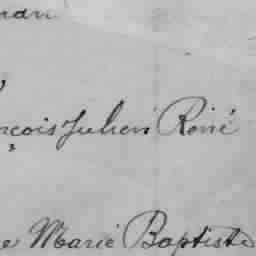 nçois Julien René
e Marie Baptiste